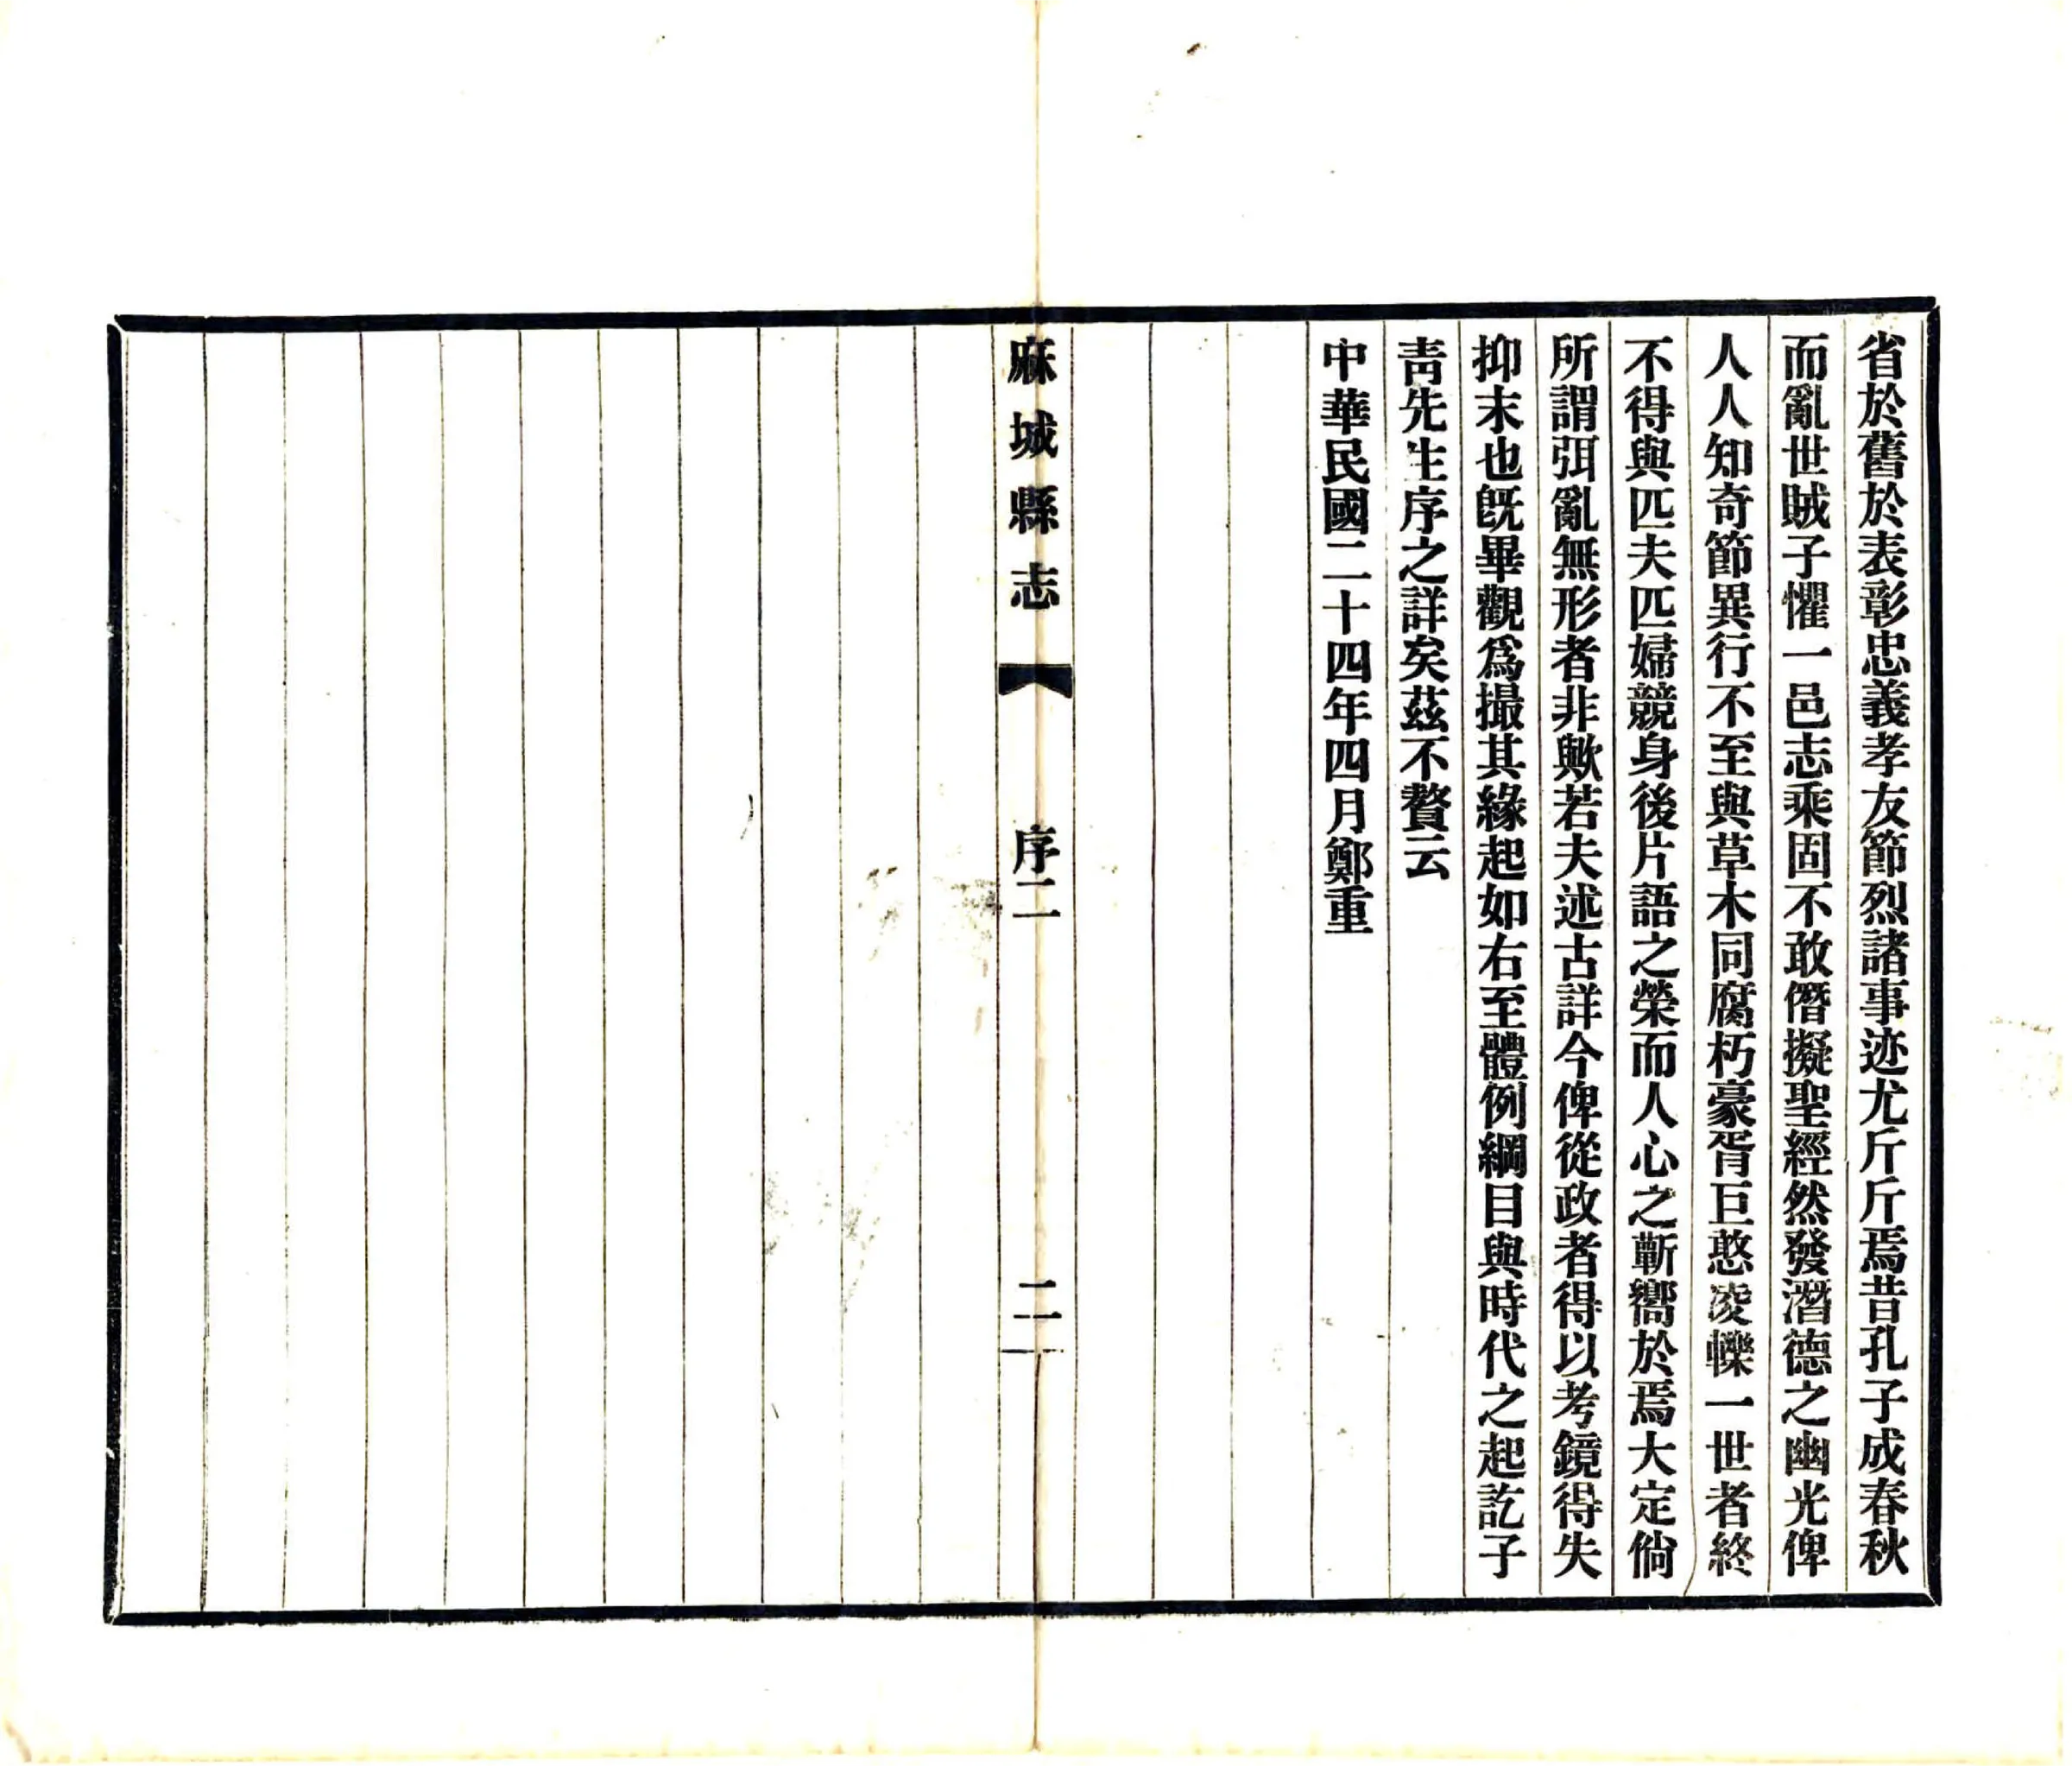 省於舊於表彰忠義孝友節烈諸事迹尤斤斤焉昔孔子成春秋
而亂世賊子懼一邑志乘固不敢僭擬聖經然發潛德之幽光俾
人人知奇節異行不至與草木同腐朽豪胥巨憝凌轢一世者終
不得與匹夫匹婦競身後片語之榮而人心之蘄嚮於焉大定倘
所謂弭亂無形者非歟若夫述古詳今俾從政者得以考鏡得失
抑末也旣畢觀爲撮其緣起如右至體例綱目與時代之起訖子
靑先生序之詳矣茲不贅云
中華民國二十四年四月鄭重
麻城縣志
序二
二